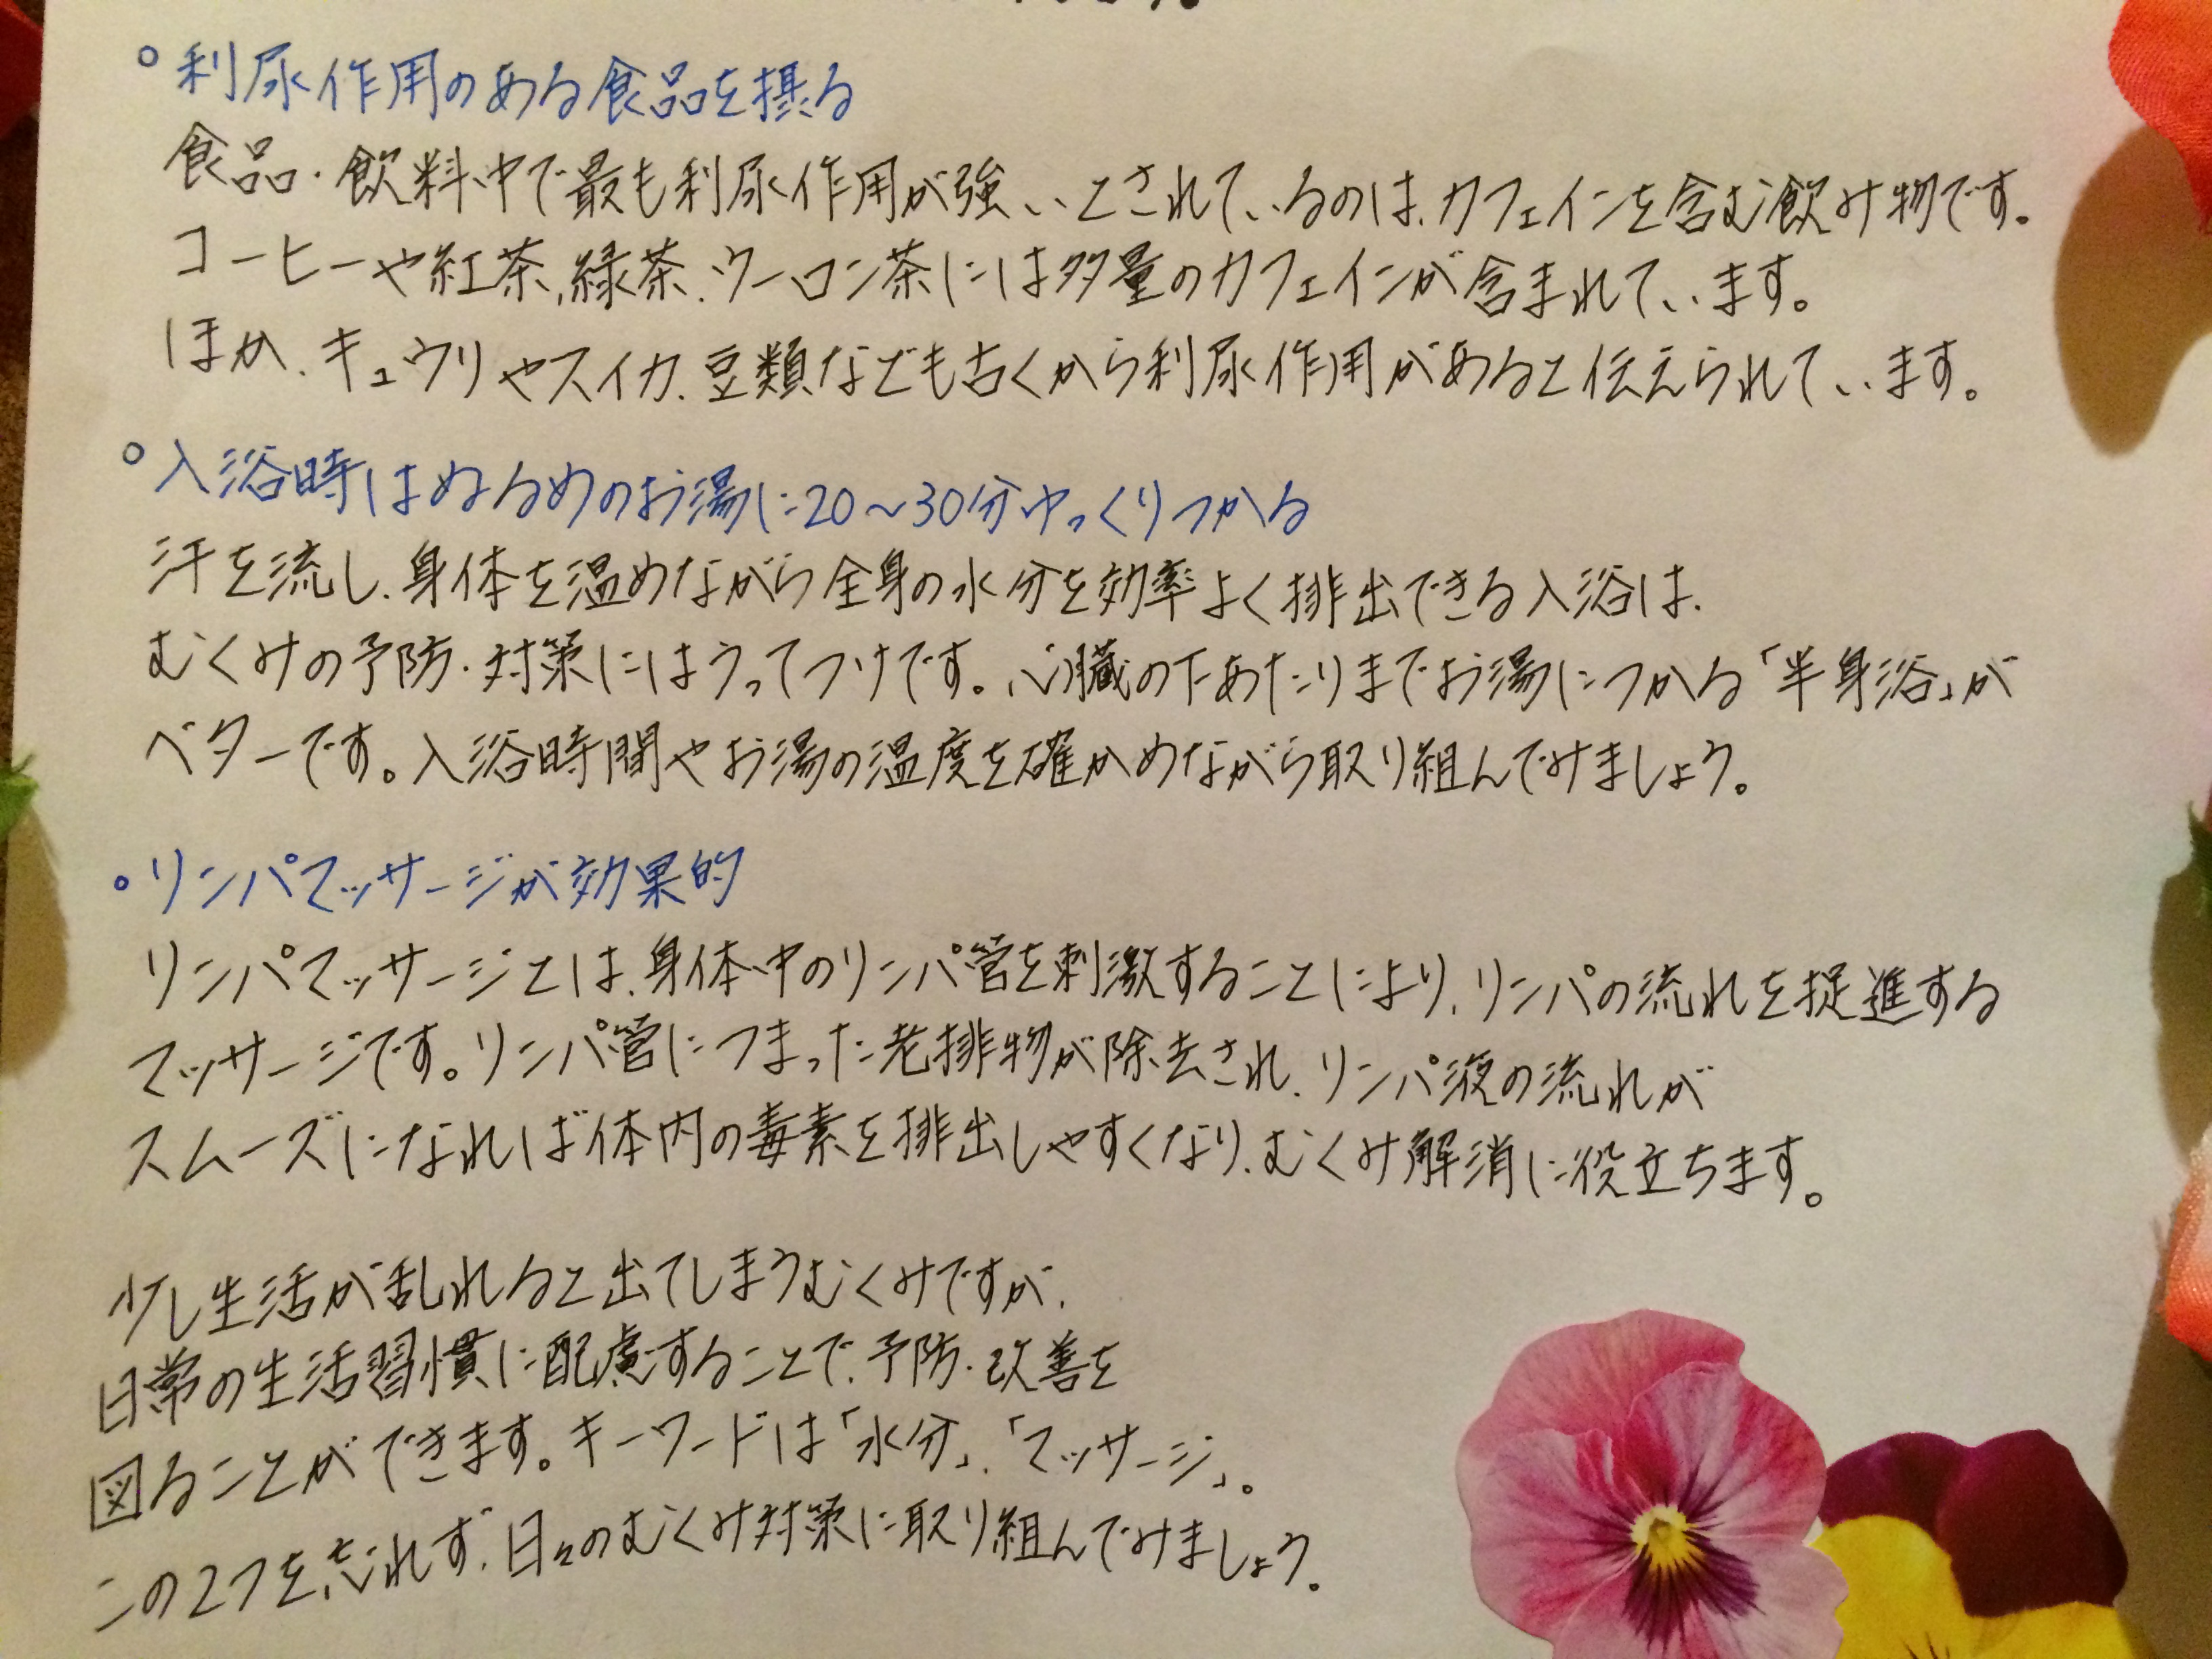 ○利尿作用のある食品を摂る
食品・飲料中で最も利尿作用が強いとされているのは、カフェインを含む飲み物です。
コーヒーや紅茶、緑茶、ウーロン茶には多量のカフェインが含まれています。
ほか、キュウリやスイカ、豆類なども古くから利尿作用があると伝えられています。
○入浴時はぬるめのお湯に20〜30分ゆっくりつかる
汗を流し、身体を温めながら全身の水分を効率よく排出できる入浴は、
むくみの予防・対策にはうってつけです。心臓の下あたりまでお湯につかる「半身浴」が
ベターです。入浴時間やお湯の温度を確かめながら取り組んでみましょう。
○リンパマッサージが効果的
リンパマッサージとは、身体中のリンパ管を刺激することにより、リンパの流れを促進する
マッサージです。リンパ管につまった老排物が除去され、リンパ液の流れが
スムーズになれば体内の毒素を排出しやすくなり、むくみ解消に役立ちます。
少し生活が乱れると出てしまうむくみですが、
日常の生活習慣に配慮することで、予防・改善を
図ることができます。キーワードは「水分」、「マッサージ」。
この2つを忘れず、日々のむくみ対策に取り組んでみましょう。